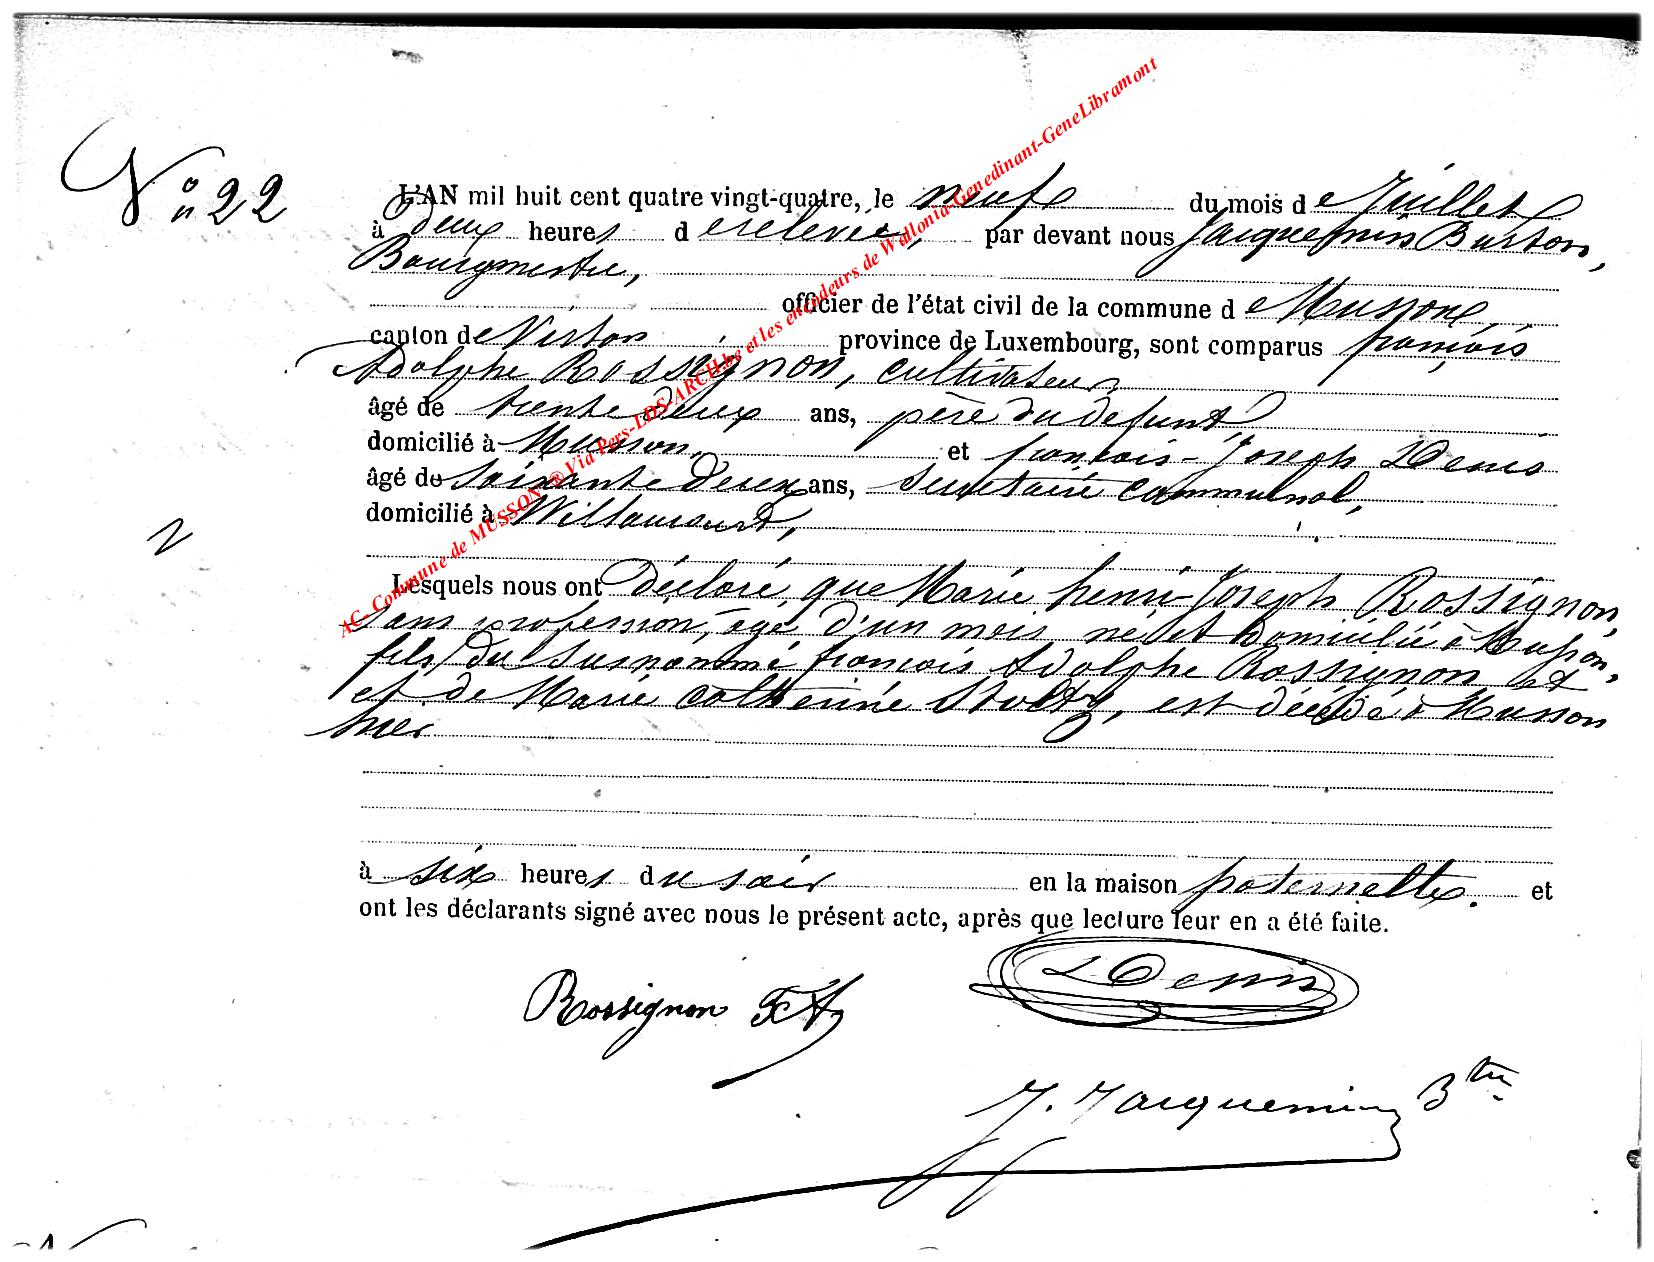 N° 22
L'AN mil huit cent quatre vingt-quatre, le neuf du mois de Juillet
à Deux heures de relevée, par devant nous Jacquemin Burton,
Bourgmestre,
officier de l'état civil de la commune de Musson,
canton de Virton province de Luxembourg, sont comparus françois
Adolphe Rossignon, cultivateur
âgé de trente deux ans, père du defunt,
domicilié à Musson, et françois-Joseph Denis
âgé de soixante Deux ans, secretaire communal,
domicilié à Willancourt,
Lesquels nous ont Déclaré, que Marie henri-Joseph Rossignon,
sans profession, âgé d'un mois, né et domicilié à Musson,
fils du susnommé françois Adolphe Rossignon et
et de Marie Catherine Stoltz, est décédé à Musson
hier
à six heures du soir en la maison paternelle. et
ont les déclarants signé avec nous le présent acte, après que lecture leur en a été faite.
Rossignon FA
Denis
J. Jacquemin Btre
AC- Commune de MUSSON ® Via Pers-LDS-ARCH.be et les encodeurs de Wallonia-Genedinant-GeneLibramont